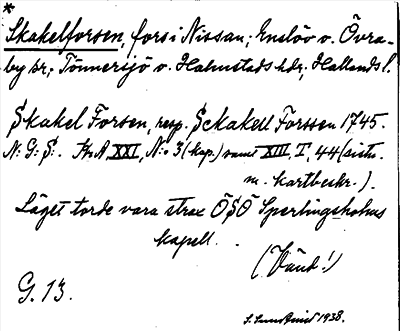 *
Skakelforsen, fors i Nissan; Enslöv o. Övra-
by skr; Tönnersjö o. Halmstads hdr; Hallands l.
Skakel Forsen, resp. Sckakell Forssen 1745.
N: G: S: Kr. A XXI, N:o 3 (kop.) samt XIII, T, 44 (avskr.
m. kartbeskr.).
Läget torde vara strax ÖSÖ Sperlingsholms
kapell.
(Vänd!)
G. 13.
1938.